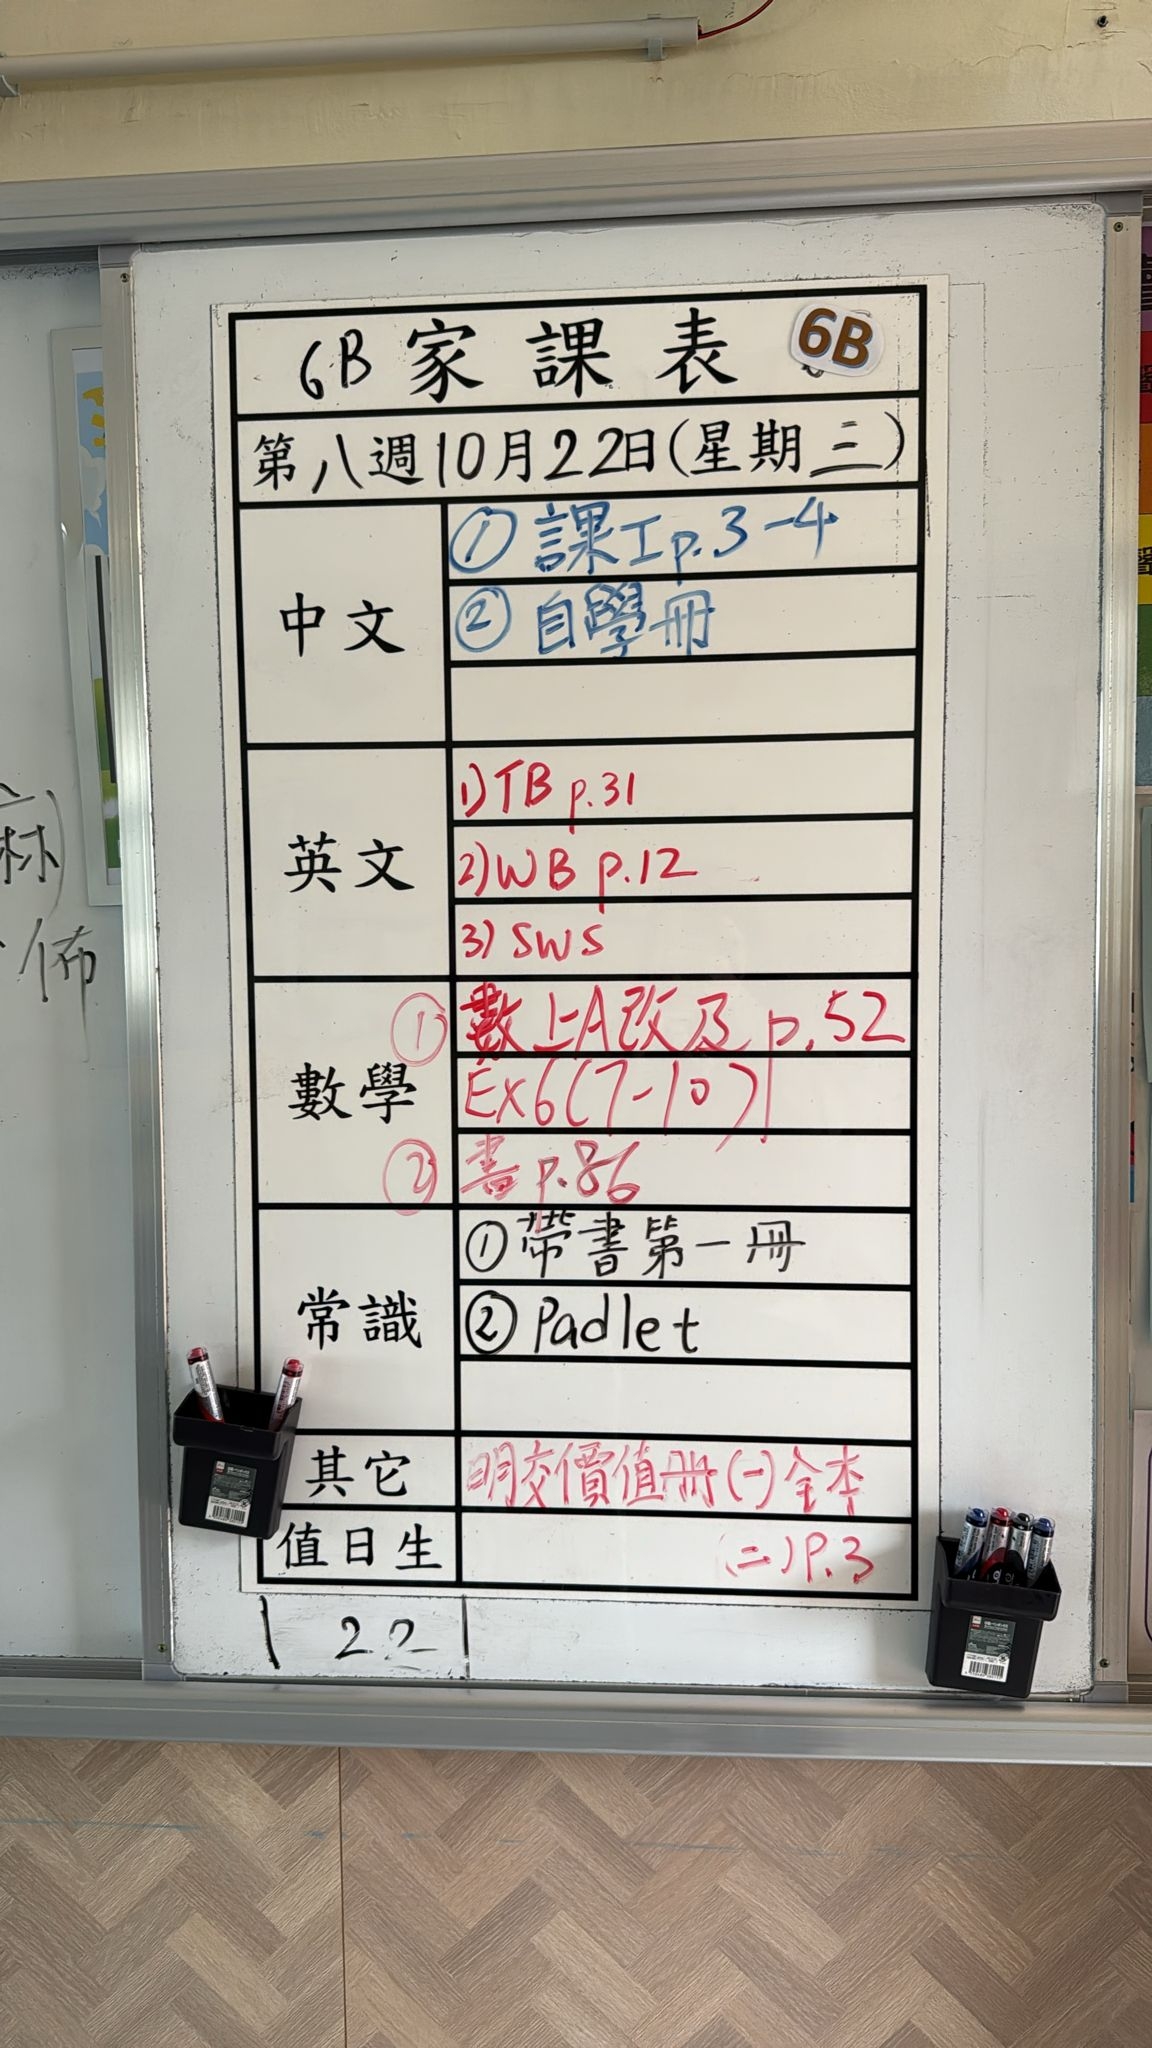 6B 家課表 6B
第八週10月22日(星期三)
中文
① 課工p.3-4
② 自學冊
英文
1) TB p.31
2) WB p.12
3) SWS
數學
① 數上A改及p.52
Ex6(7-10)
② 書p.86
常識
① 帶書第一冊
② Padlet
其它
明交價值冊(一)全本
值日生
(二)P.3
22
佈